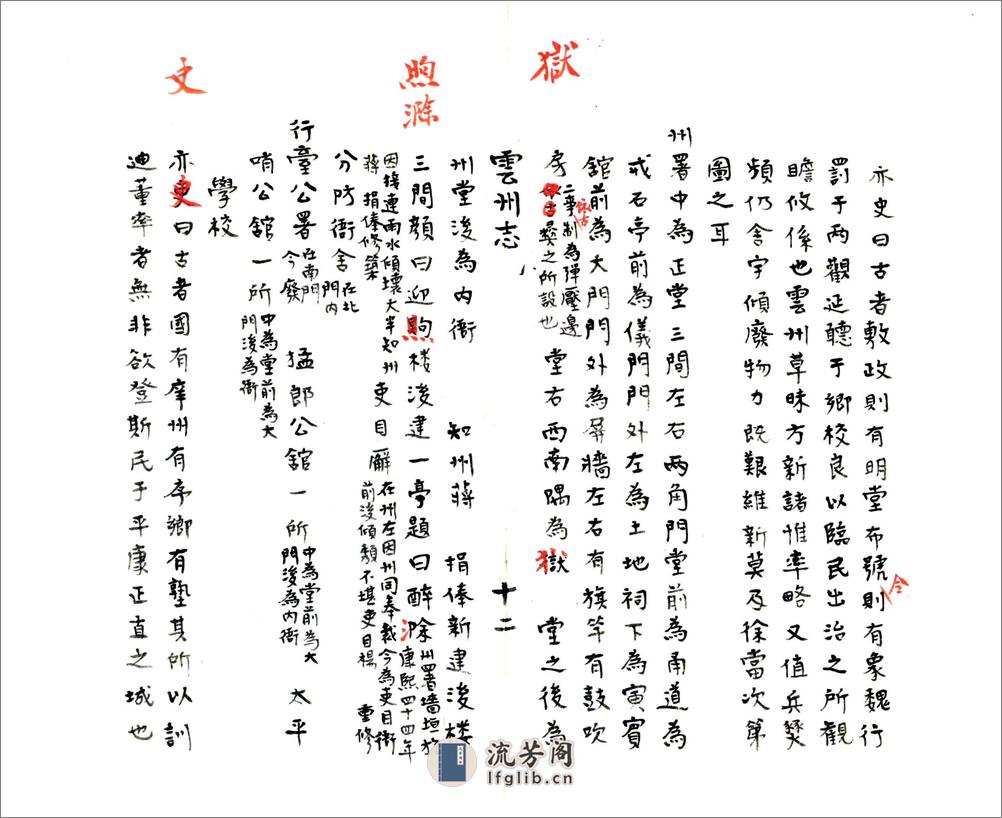 獄
煦
滁
史
亦史曰古者敷政則有明堂布號則有象魏行
令
罰于两觀延聽于鄉校良以臨民出治之所觀
瞻攸係也雲州草昧方新諸惟率略又值兵燹
頻仍舍宇傾廢物力既艱維新莫及徐當次第
圖之耳
州署中為正堂三間左右两角門堂前為甬道為
戒石亭前為儀門門外左為土地祠下為寅賓
舘前為大門門外為屏牆左右有旗竿有鼓吹
房 二亭制為弹壓邊
依古
夷之所設也 堂右西南隅為獄 堂之後為
雲州志 十二
州堂後為内衙 知州蔣 捐俸新建後楼
三間顔曰迎煦楼後建一亭題曰醉滁 州署墻垣於
康熙四十四年
因接連雨水傾壞大半知州
蔣 捐俸修築 吏目廨 在州左因州同奉裁今為吏目衙
前後傾頽不堪吏目楊 重修
分防衙舍 在北
門内
行臺公署 在南門
今廢 猛郎公舘一所 中為堂前為大
門後為内衙 太平
哨公舘一所 中為堂前為大
門後為衙
學校
亦史曰古者國有庠州有序鄉有塾其所以訓
迪董率者無非欲登斯民于平康正直之域也
流芳阁
lfglib.cn